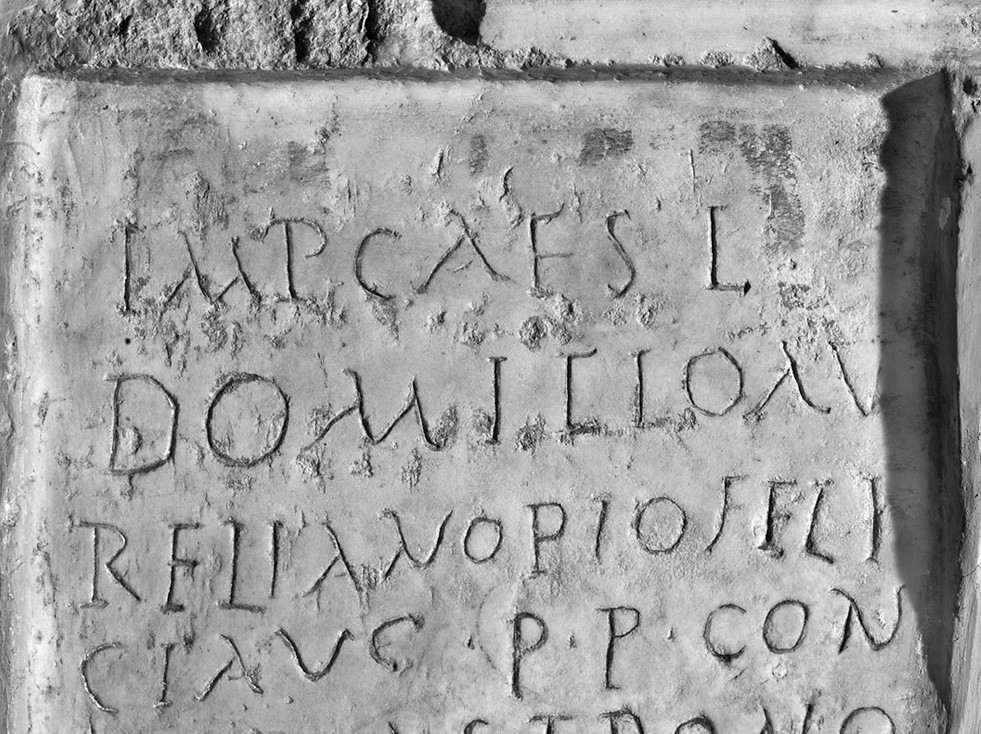 IMP CAES L
DOMITIO AV
RELIANO PIO FELI
CI AVG · P · P · CON